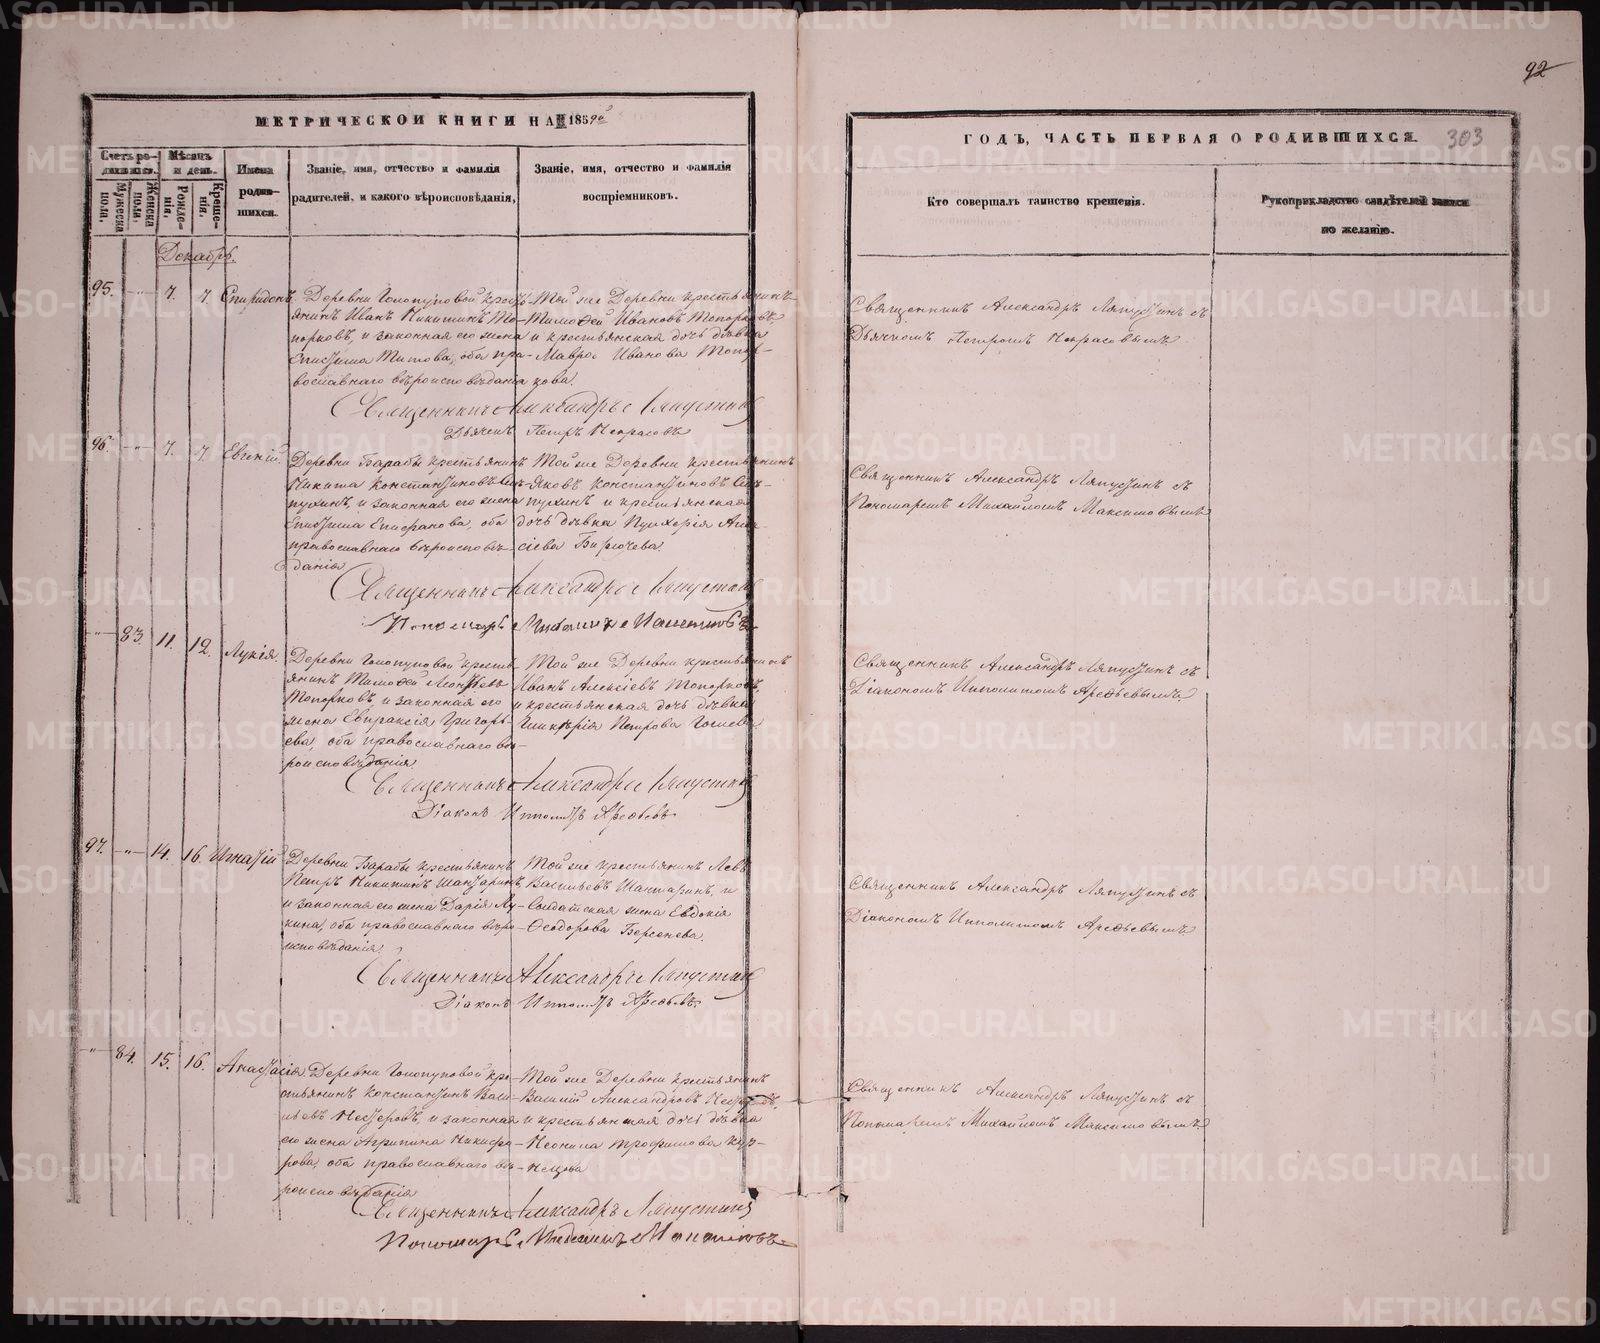 92
МЕТРИЧЕСКОЙ КНИГИ НА 1859й
ГОДЪ, ЧАСТЬ ПЕРВАЯ О РОДИВШИХСЯ.
303
Счетъ родившихся.
Мужеска пола.
Женска пола.
Мѣсяцъ и день.
Рожденія.
Крещенія.
Имена родившихся.
Званіе, имя, отчество и фамилія
родителей, и какого вѣроисповѣданія,
Званіе, имя, отчество и фамилія
воспріемниковъ.
Кто совершалъ таинство крещенія.
Рукоприкладство свидѣтелей записи
по желанію.
Декабрь.
95. -"- 7. 7. Спиридонъ.
Деревни Голопуповой крестьянинъ
Иванъ Никитинъ Топорковъ,
и законная его жена
Титова, оба православнаго
вѣроисповѣданія
Той же Деревни крестьянинъ
Тимоѳей Ивановъ Топорковъ,
и крестьянская дочь дѣвка
Мавра Иванова Топоркова.
Священникъ Александръ Ляпустинъ съ
Дьячкомъ Петромъ Некрасовымъ
Священникъ Александръ Ляпустинъ
Дьячекъ Петръ Некрасовъ
96. -"- 7. 7. Евгеній.
Деревни Барабы крестьянинъ
Никита Константиновъ
и законная его жена
Епифанова, оба
православнаго вѣроисповѣданія
Той же Деревни крестьянинъ
Яковъ Константиновъ
и крестьянская
дочь дѣвка Пулхерія
Священникъ Александръ Ляпустинъ съ
Пономаремъ Михайломъ Максимовымъ
Священникъ Александръ Ляпустинъ
Пономарь Михаилъ Максимовъ
-"- 83. 11. 12. Лукія.
Деревни Голопуповой крестьянинъ
Тимоѳей Леонтьевъ
Топорковъ, и законная его
жена Евпраксія Григорьева,
оба православнаго вѣроисповѣданія
Той же Деревни крестьянинъ
Иванъ Алексіевъ Топорковъ,
и крестьянская дочь дѣвка
Гликерія Петрова
Священникъ Александръ Ляпустинъ съ
Діакономъ Ипполитомъ Арефьевымъ
Священникъ Александръ Ляпустинъ
Діаконъ Ипполитъ Арефьевъ
97. -"- 14. 16. Игнатій
Деревни Барабы крестьянинъ
Петръ Никитинъ Шантаринъ,
и законная его жена Дарія Лукина,
оба православнаго вѣроисповѣданія
Той же крестьянинъ Левъ
Васильевъ Шантаринъ, и
Солдатская жена Евдокія
Ѳеодорова Берсенева.
Священникъ Александръ Ляпустинъ съ
Діакономъ Ипполитомъ Арефьевымъ
Священникъ Александръ Ляпустинъ
Діаконъ Ипполитъ Арефьевъ
-"- 84. 15. 16. Анастасія.
Деревни Голопуповой крестьянинъ
Константинъ Васильевъ
Нестеровъ, и законная
его жена Агрипина Никифорова,
оба православнаго вѣроисповѣданія
Той же Деревни крестьянинъ
Василій Александровъ
и крестьянская дочь дѣвка
Неонила Трофимова
Священникъ Александръ Ляпустинъ съ
Пономаремъ Михайломъ Максимовымъ
Священникъ Александръ Ляпустинъ
Пономарь Михаилъ Максимовъ
METRIKI.GASO-URAL.RU